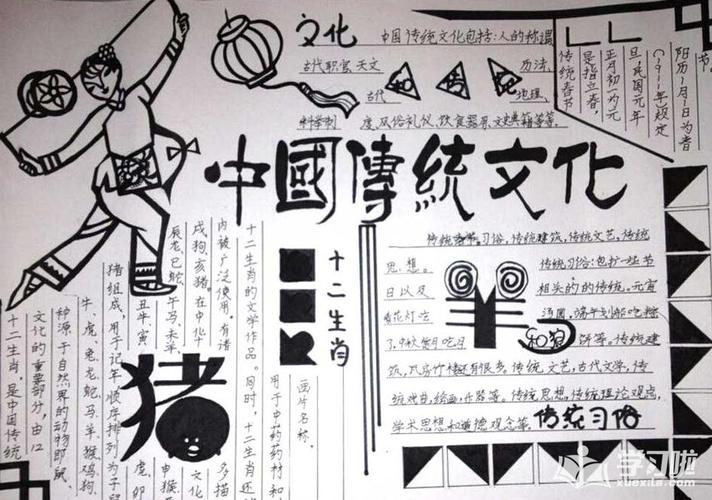 文化
中国传统文化包括:人的称谓
古代职官、天文
历法、
古代
地理、
科学制
度、及俗礼仪、饮食器用、文史典籍等等。
节。
阳历一月一日为春
(1911年)规定
旦,民国元年
正月初一为元
是指立春,
传统春节
中國傳統文化
传统
习俗,传统建筑,传统文艺,传统
思想。
传统习俗:包扩一些节
日以及
相关的的传统。元宵
看花灯吃
汤圆,端午划船吃粽
和
饼等。传统建
筑,
有很多,传统文艺,古代文学,传
统戏曲,绘画,乐器等。传统思想,传统理论观点,
学术思想和道德观念等。
传统习俗
十二生肖
羊
猪
十二生肖,是中国传统
文化的重要部分,由12
种源于自然界的动物即鼠、
牛、虎、兔、龙、蛇、马、羊、猴、鸡、狗、
猪组成,用于记年,顺序排列为子鼠、
丑牛、寅
虎、卯
辰龙、巳蛇、
午马、未羊
申猴
戌狗、亥猪。在中华
文化
内被广泛使用。有诸
多描
十二生肖的文学作品。同时,十二生肖还
用于中药药材和
画片名称。
学习啦
xuexila.com